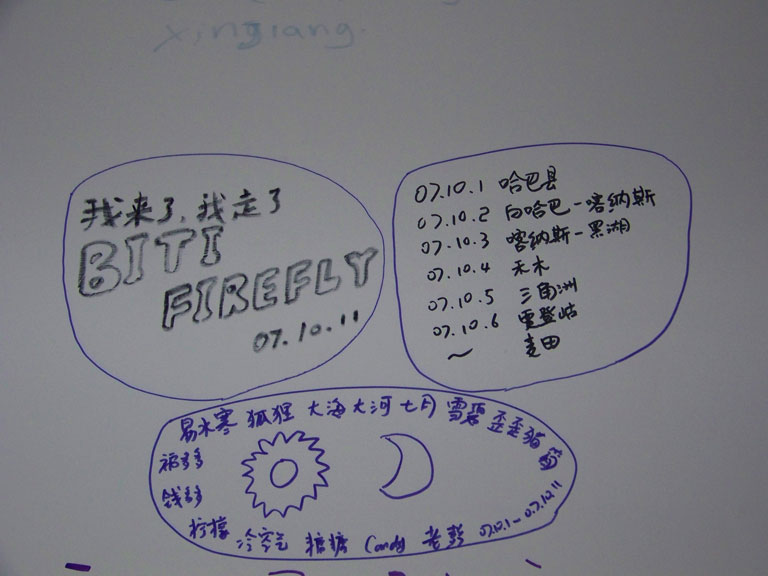 xingiang.
我来了,我走了
BITI
FIREFLY
07.10.11
07.10.1 哈巴县
07.10.2 白哈巴-喀纳斯
07.10.3 喀纳斯-黑湖
07.10.4 禾木
07.10.5 三角洲
07.10.6 雪登岵
~ 麦田
易水寒 狐狸 大海 大河 七月 雪碧 歪歪猫
福多多
钱多多
柠檬 冷空气 糖糖 Candy 老彭 07.10.1-07.10.11